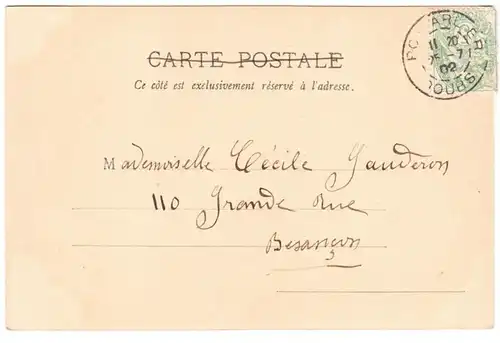 CARTE POSTALE
Ce côté est exclusivement réservé à l'adresse.
Mademoiselle Cécile Gauderon
110 Grande Rue
Besançon
PONTARLIER
11 20
25 -7
02